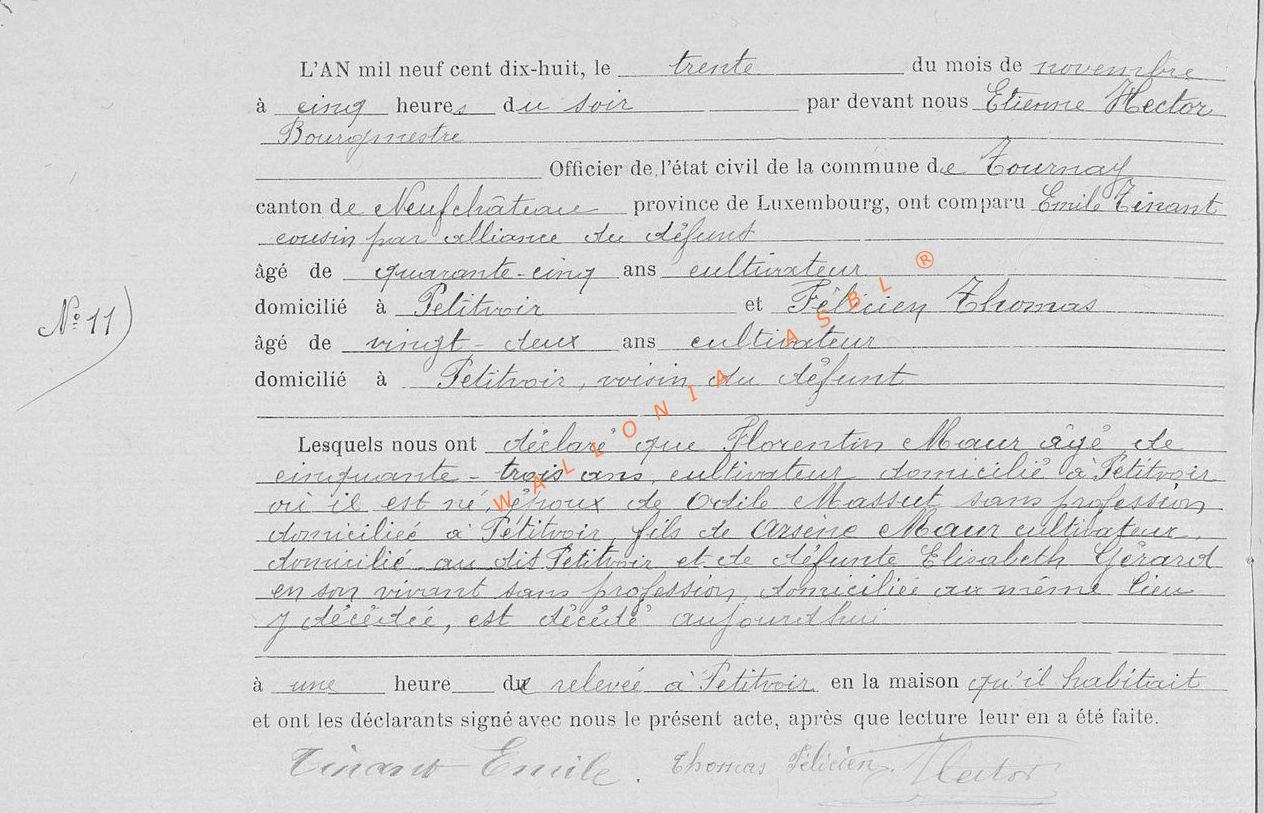 L'AN mil neuf cent dix-huit, le trente du mois de novembre
à cinq heures du soir par devant nous Etienne Hector
Bourgmestre
Officier de l'état civil de la commune de Tournay
canton de Neufchâteau province de Luxembourg, ont comparu Emile Tinant
cousin par alliance du défunt
âgé de quarante-cinq ans cultivateur
domicilié à Petitvoir et Félicien Thomas
N° 11)
âgé de vingt-deux ans cultivateur
domicilié à Petitvoir, voisin du défunt
Lesquels nous ont déclaré que Florentin Maur âgé de
cinquante-trois ans, cultivateur, domicilié à Petitvoir
où il est né, époux de Odile Massut sans profession
domiciliée à Petitvoir, fils de Arsène Maur cultivateur,
domicilié au dit Petitvoir et de défunte Elisabeth Gérard
en son vivant sans profession, domiciliée au même lieu
y décédée, est décédé aujourd'hui
à une heure de relevée à Petitvoir en la maison qu'il habitait
et ont les déclarants signé avec nous le présent acte, après que lecture leur en a été faite.
Tinant Emile. Thomas Félicien. Hector
WALLONIA ASBL ®